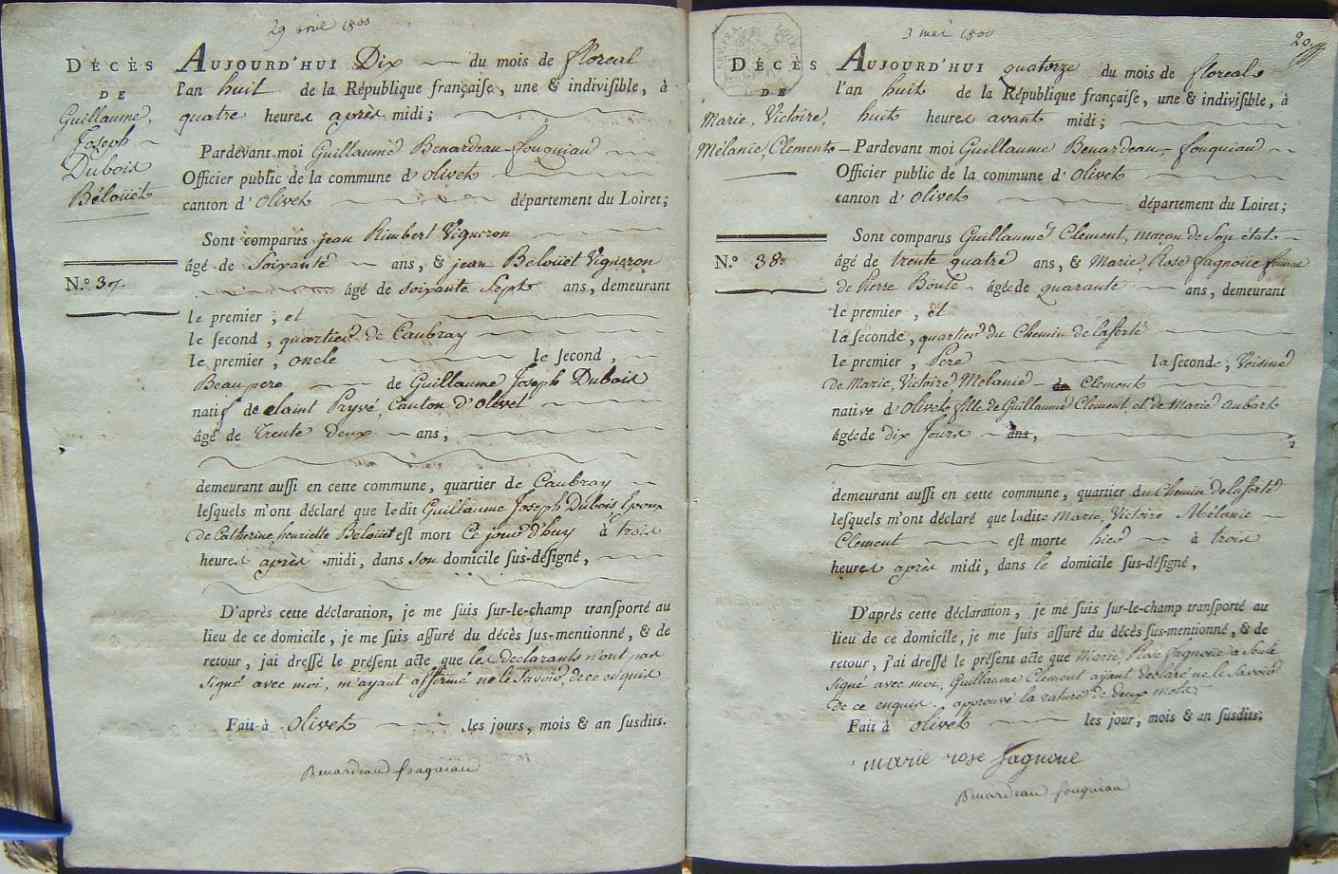 29 avril 1800
DÉCÈS
DE
Guillaume,
Joseph
Dubois
Bélouet
N.° 37.
AUJOURD'HUI Dix du mois de floreal
l'an huit de la République françaiſe, une & indiviſible, à
quatre heures après midi;
Pardevant moi Guillaume Benardeau-fouquiau
Officier public de la commune d'olivet
canton d'Olivet département du Loiret;
Sont comparus jean Rimbert Vigneron
âgé de Soixante ans, & jean Belouet Vigneron
âgé de soixante Sept ans, demeurant
le premier, et
le ſecond, quartier de Caubray
le premier, oncle le ſecond,
Beaupere de Guillaume Joseph Dubois
natif de Saint Pryvé, Canton d'olivet
âgé de Trente Deux ans,
demeurant auſſi en cette commune, quartier de Caubray
leſquels m'ont déclaré que ledit Guillaume Joseph Dubois Epoux
de Catherine henriette Belouet est mort Ce jour d'huy à trois
heures après midi, dans son domicile ſus-déſigné,
D'après cette déclaration, je me ſuis ſur-le-champ tranſporté au
lieu de ce domicile, je me ſuis aſſuré du décès ſus-mentionné, & de
retour, j'ai dreſſé le préſent acte, que les declarants n'ont pas
signé avec moi, m'ayant affirmé ne le Savoir, de ce enquis
Fait à Olivet les jours, mois & an ſuſdits.
Benardeau fouquiau
3 mai 1800
20
DÉCÈS
DE
Marie, Victoire,
Mélanie, Clement
N.° 38.
AUJOURD'HUI quatorze du mois de floreal
l'an huit de la République françaiſe, une & indiviſible, à
huit heures avant midi;
Pardevant moi Guillaume Benardeau-fouquiau
Officier public de la commune d'olivet
canton d'Olivet département du Loiret;
Sont comparus Guillaume Clement, maçon de Son état
âgé de trente quatre ans, & Marie, Rose Jagnoue femme
de Pierre Boulé âgée de quarante ans, demeurant
le premier, et
la ſeconde, quartier du Chemin de laferté
le premier, Pere la ſeconde, Voisine
de Marie, Victoire Melanie Clement
native d'Olivet fille de Guillaume Clement et de Marie aubert
âgée de dix Jours ans,
demeurant auſſi en cette commune, quartier du Chemin de laferté
leſquels m'ont déclaré que ladite Marie, Victoire Mélanie
Clement est morte hier à trois
heures après midi, dans le domicile ſus-déſigné,
D'après cette déclaration, je me ſuis ſur-le-champ tranſporté au
lieu de ce domicile, je me ſuis aſſuré du décès ſus-mentionné, & de
retour, j'ai dreſſé le préſent acte que Marie, Rose Jagnoue a Seule
signé avec moi, Guillaume Clement ayant déclaré ne le Savoir
de ce enquis. approuvé la rature de deux mots
Fait à olivet les jour, mois & an ſuſdits;
marie rose Jagnoue
Benardeau fouquiau